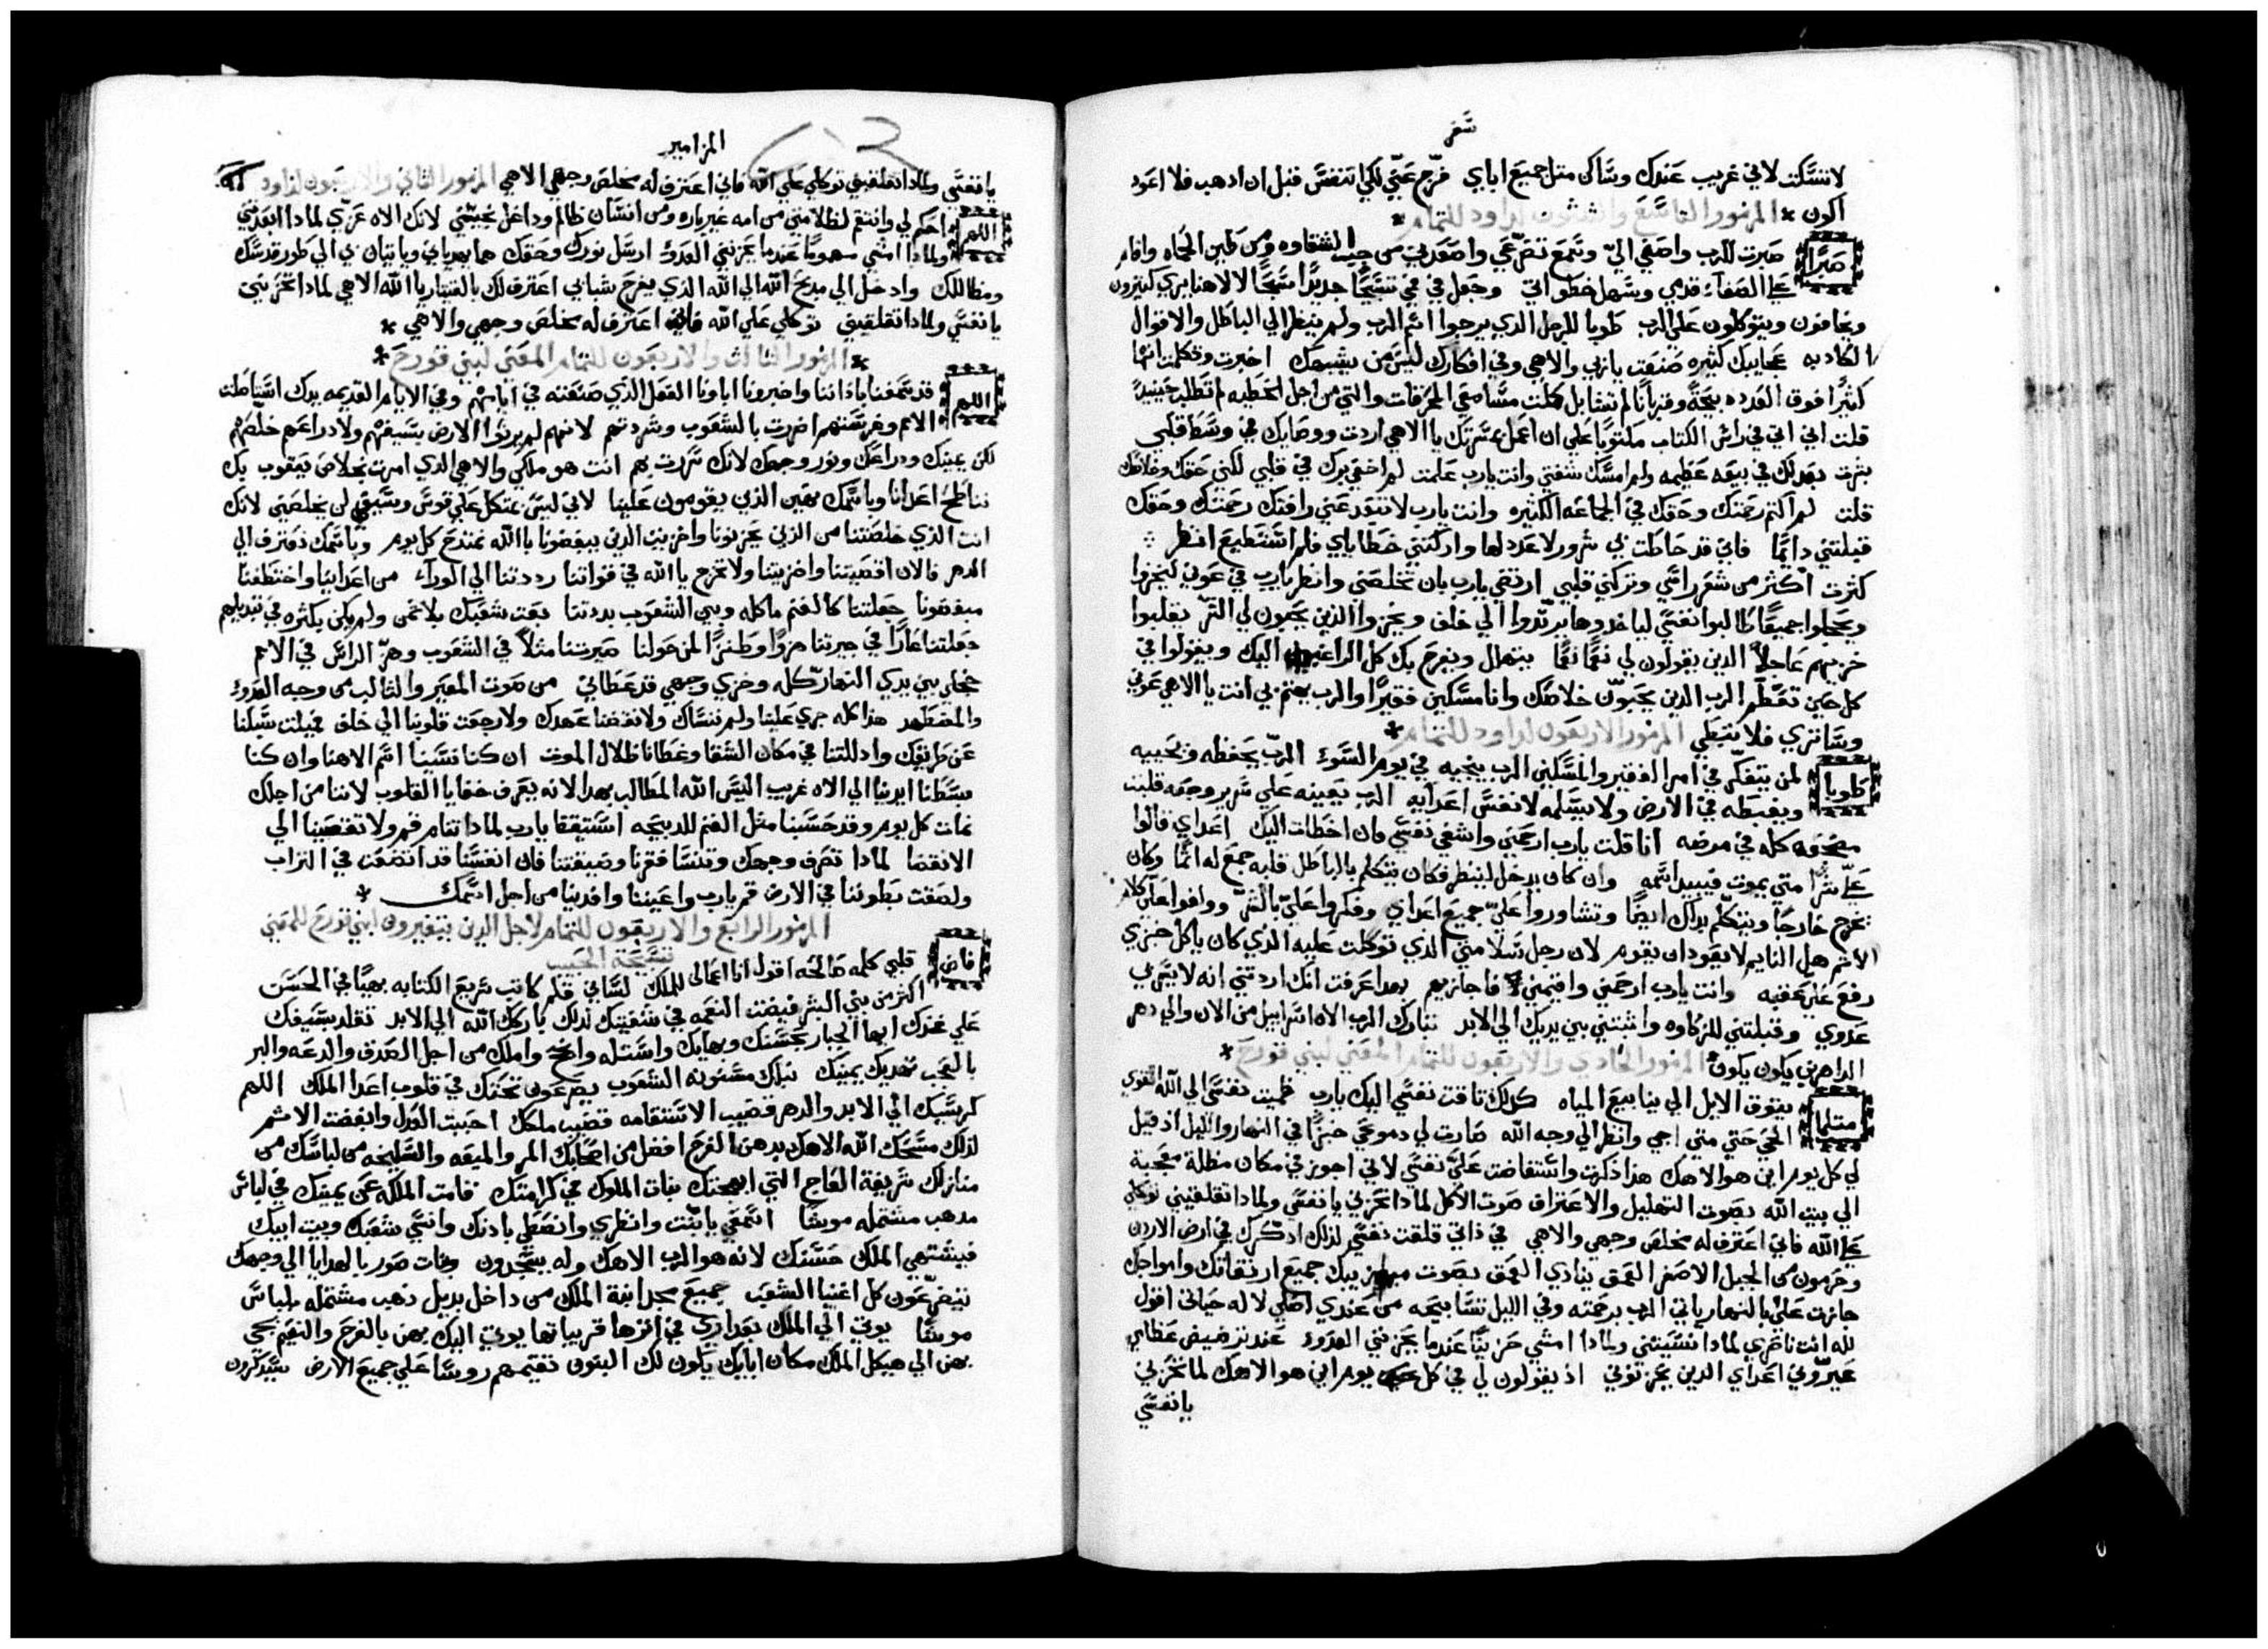 سفر
لاتسكت لاني غريب عندك وساكن متل جميع اباي فرّج عنّي لكي اتنفس قبل ان ادهب فلا اعود
اكون * المزمور التاسع والثلثون لداود للتمام *
صبرًا صبرت للرب واصغي اليّ وسمع تضرّعي واصعدني من جب الشقاوه ومن طين الحماه واقام
علي الصفاء قدمي وسهل خطواتي وجعل في فمي تسبيحًا جديدًا سبحًا لالاهنا يري كتيرون
ويخافون ويتوكلون علي الرب طوبا للرجل الدي يرجوا اسم الرب ولم ينظر الي الباطل والاقوال
الكادبه عجايبك كثيره صنعت يا ربي والاهي وفي افكارك ليس من يشبهك اخبرت وتكلمت انها
كثيرًا فوق العدد دبيحةً وقربانًا لم تشا بل كملت مسامعي المحرقات والتي من اجل الخطيه لم تطلب حينيدٍ
قلت اني اتي في راس الكتاب مكتوبًا علي ان اعمل مسرتك يا الاهي اردت ووصاياك في وسط قلبي
بشرت بعدلك في بيعه عظيمه ولم امسك شفتي وانت يا رب علمت لم اخفي برك في قلبي لكني حقك وخلاصك
قلت لم اكتم رحمتك وحقك في الجماعه الكثيره وانت يا رب لاتبعد عني رافتك رحمتك وحقك
قبلتني دايمًا فاني قد حاطت بي شرور لا عدد لها وادركتني خطاياي فلم استطيع انظر
كثرت اكثر من شعر راسي وتركني قلبي ارتضي يا رب بان تخلصني وانظر يا رب في عوني ليخزوا
ويخجلوا جميعًا طالبوا نفسي لياخدوها يرتدوا الي خلف ويخزوا الذين يحبون لي الشر يقلبوا
خزيهم عاجلًا الدين يقولون لي نعمًا نعمًا يبتهل ويفرح بك كل الراغبين اليك ويقولوا في
كل حين تعظّم الرب الدين يحبون خلاصك وانا مسكين فقيرًا والرب يهتم بي انت يا الاهي عوني
وساتري فلا تبطي المزمور الاربعون لداود للتمام *
طوبا لمن يتفكّر في امر الفقير والمسكين الرب ينجيه في يوم السوء الرب يحفظه ويحييه
ويغبطه في الارض ولا يسلمه لانفس اعدايه الرب يعينه علي سرير وجعه قلبت
مضجعه كله في مرضه انا قلت يا رب ارحمني واشفي نفسي فان اخطات اليك اعداي قالوا
عليّ شرًا متي يموت فيبيد اسمه وان كان يدخل لينظر فكان يتكلم بالباطل قلبه جمع له اثمًا وكان
يخرج خارجًا ويتكلم بداك ايضًا وتشاوروا عليّ جميع اعداي وفكروا عليّ بالشر ووافوا علي كلام
الاثم هل النايم لايعود ان يقوم لان رجل سلامتي الدي توكلت عليه الدي كان ياكل خبزي
رفع علي عقبه وانت يا رب ارحمني واقيمني فاجازيهم بهدا عرفت انك اردتني انه لايسر بي
عدوي وقبلتني للزكاوه واثبتني بين يديك الي الابد تبارك الرب الاه اسراييل من الان والي دهر
الداهرين يكون يكون المزمور الحادي والاربعون للتمام المغني لبني قورح *
متلما يتوق الايل الي ينابيع المياه كدلك تاقت نفسي اليك يا رب ظميت نفسي الي الله القوي
الحي حتي متي اجي وانظر الي وجه الله صارت لي دموعي خبزًا في النهار والليل اذ قيل
لي كل يوم اين هو الاهك هذا ذكرت واستفاضت علي نفسي لاني اجوز في مكان مظلة معجبة
الي بيت الله بصوت التهليل والاعتراف صوت الاكل لمادا تحزني يا نفسي ولمادا تقلقيني توكلي
علي الله فاني اعترف له مخلص وجهي والاهي في ذاتي قلقت نفسي لذلك ادكرك في ارض الاردن
وحرمون من الجبل الاصغر العمق ينادي العمق بصوت ميازيبك جميع ارتفاعاتك وامواجك
جازت علي بالنهار ياتي الرب برحمته وفي الليل تسابيحه من عندي اصلي لاله حياتي اقول
لله انت ناصري لمادا نسيتني ولمادا امشي حزينًا عندما يحزنني العدوّ عند ترضيض عظامي
عيّروني اعداي الدين يحزنوني اذ يقولون لي في كل يوم اين هو الاهك لما تحزني
يا نفسي
المزامير
يا نفسي ولمادا تقلقيني توكلي علي الله فاني اعترف له مخلص وجهي الاهي المزمور الثاني والاربعون لداود
اللهم احكم لي وانتقم لظلامتي من امه غير باره ومن انسان ظالم وداغل نجيني لانك الاه عزي لمادا ابعدتني
ولمادا امشي مهمومًا عندما يحزنني العدوّ ارسل نورك وحقك هما يهدياني وياتيان بي الي طور قدسك
ومظالك وادخل الي مدبح الله الي الله الذي يفرح شبابي اعترف لك بالقيتار يا الله الاهي لمادا تحزنيني
يا نفسي ولمادا تقلقيني توكلي علي الله فاني اعترف له مخلص وجهي والاهي *
* المزمور الثالث والاربعون للتمام المغني لبني قورح *
اللهم قد سمعنا باذاننا واخبرونا اباونا الفعل الذي صنعته في ايامهم وفي الايام القديمه يدك استاصلت
الامم وغرستهم اضررت بالشعوب وشردتهم لانهم لم يرثوا الارض بسيفهم ولا دراعهم خلصهم
لكن يمينك ودراعك ونور وجهك لانك سررت بهم انت هو ملكي والاهي الدي امرت بخلاص يعقوب بك
نناطح اعدانا وباسمك نهين الذين يقومون علينا لاني ليس نتكل علي قوسي وسيفي لن يخلصني لانك
انت الذي خلصتنا من الذين يحزنونا واخزيت الذين يبغضونا بالله نمتدح كل يوم وباسمك نعترف الي
الدهر فالان اقصيتنا واخزيتنا ولا تخرج يا الله في قواتنا رددتنا الي الوراء من اعداينا واختطفنا
مبغضونا جعلتنا كالغنم ماكله وبين الشعوب بددتنا بعت شعبك بلا ثمن ولم يكن بكثره في تبديلهم
جعلتنا عارًا في جيرتنا هزوًا وطنزًا لمن حولنا صيرتنا مثلًا في الشعوب وهزّ الراس في الامم
خجلي بين يدي النهار كله وخزي وجهي قد غطاني من صوت المعير والثالب من وجه العدوّ
والمضطهد هذا كله جري علينا ولم ننساك ولا نقضنا عهدك ولا رجعت قلوبنا الي خلف فميلت سبلنا
عن طريقك وادللتنا في مكان الشقا وغطانا ظلال الموت ان كنا نسينا اسم الاهنا وان كنا
بسطنا ايدينا الي الاه غريب اليس الله المطالب بهدا لانه يعرف خفايا القلوب لاننا من اجلك
نمات كل يوم وقد حسبنا مثل الغنم للدبيحه استيقظ يا رب لمادا تنام قم ولا تقصينا الي
الانقضا لمادا تصرف وجهك وتنسا فقرنا وضيقتنا فان انفسنا قد اتضعت في التراب
ولصقت بطوننا في الارض قم يا رب واعيننا وافدينا من اجل اسمك *
المزمور الرابع والاربعون للتمام لاجل الدين يتغيرون لبني قورح للمغني
تسبحة الحبيب
فاض قلبي كلمه صالحه اقول انا اعمالي للملك لساني قلم كاتب سريع الكتابه بهيًا في الحسن
اكثر من بني البشر فيضت النعمه في شفتيك لذلك باركك الله الي الابد تقلد بسيفك
علي فخدك ايها الجبار بحسنك وبهايك واستله وانجح واملك من اجل الصدق والدعه والبر
بالعجب تهديك يمينك نبلك مسنونه الشعوب يصرعون تحتك في قلوب اعدا الملك اللهم
كرسيك الي الابد والدهر قضيب الاستقامه قضيب ملكك احببت العدل وابغضت الاثم
لذلك مسحك الله الاهك بدهن الفرح افضل من اصحابك المر والميعه والسليخه من لباسك من
منازلك شريفة العاج التي ابهجتك بنات الملوك في كرامتك قامت الملكه عن يمينك في لباس
مدهب مشتمله موشا اسمعي يا بنت وانظري وانصتي بادنك وانسي شعبك وبيت ابيك
فيشتهي الملك حسنك لانه هو الرب الاهك وله يسجدون وبنات صور بالهدايا الي وجهك
يتضرعون كل اغنيا الشعب جميع مجد ابنة الملك من داخل بديل دهب مشتمله بلباس
موشا يوتي الي الملك بعداري في اثرها قريباتها يوتي اليك بهن بالفرح والنعيم يجي
بهن الي هيكل الملك مكان ابايك يكون لك البنون تقيمهم روسا علي جميع الارض سيذكرون